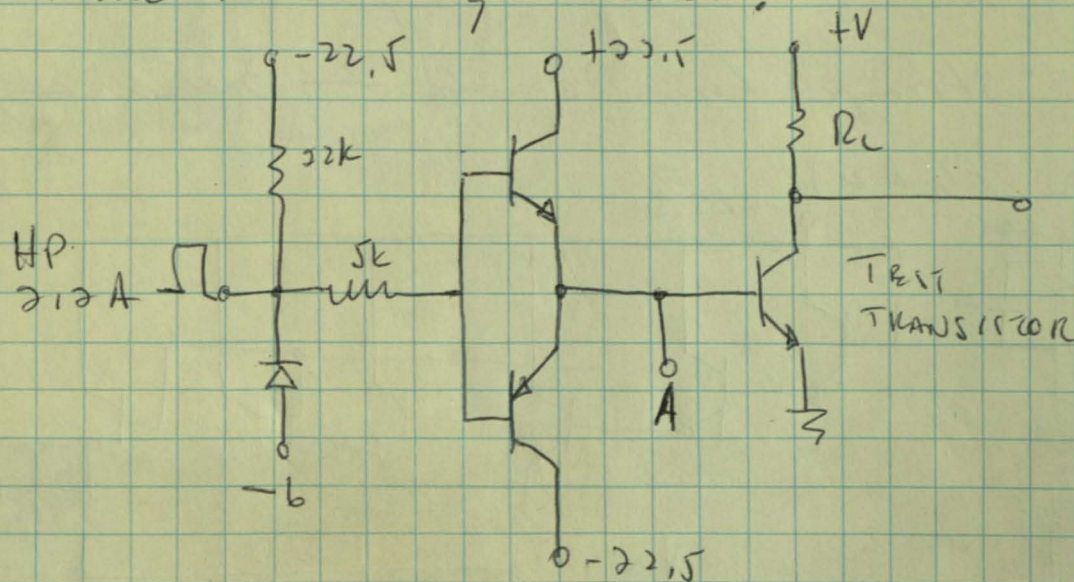 +V
-22.5
+22.5
22K
RL
HP
212A
5K
TEST
TRANSISTOR
A
-6
-22.5